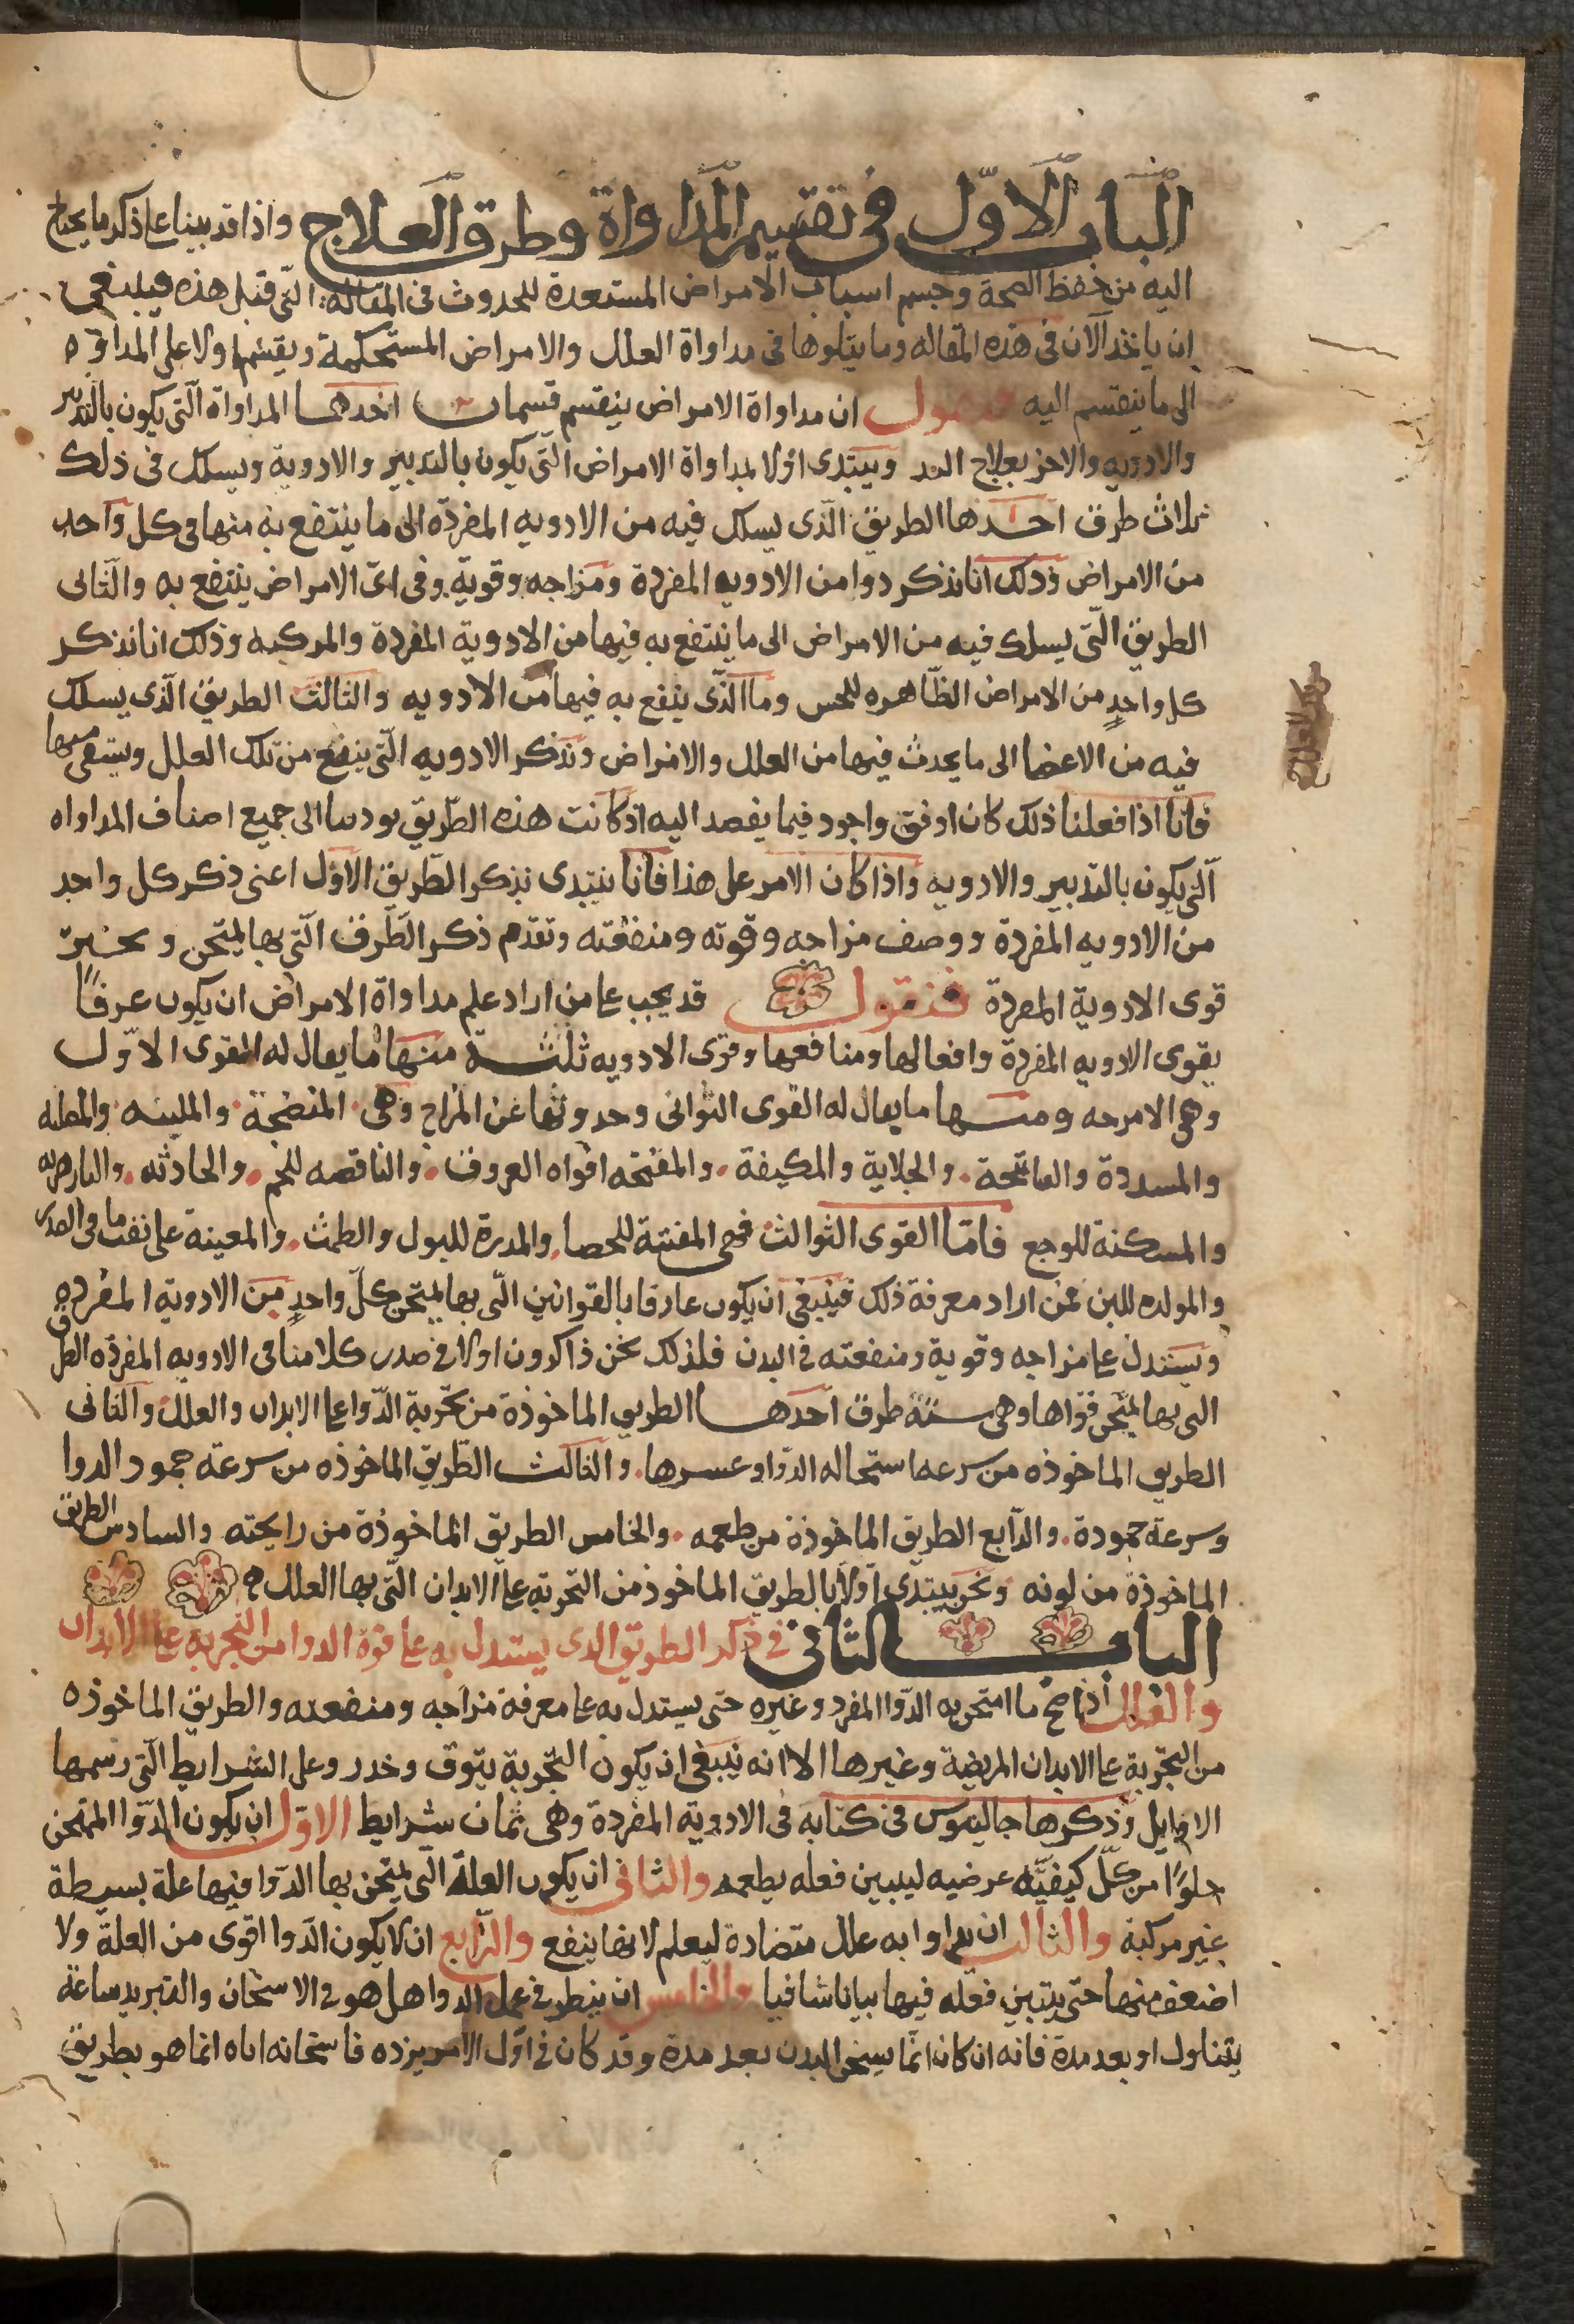 الباب الاول في تقسيم المداواة وطرق العلاج واذا قد بينا على ذكر ما يحتاج
اليه من حفظ الصحة وحسم اسباب الامراض المستعدة للحدوث في المقالة التي قبل هذه فينبغي
ان ياخذ الآن في هذه المقاله وما يتلوها في مداواة العلل والامراض المستحكمة ويقسم اولا على المداوه
الى ما ينقسم اليه فنقول ان مداواة الامراض ينقسم قسمان احدهما المداواة التي يكون بالتدبير
والادويه والاخر بعلاج اليد ويبتدى اولا بمداواة الامراض التي يكون بالتدبير والادوية ويسلك في ذلك
ثلاث طرق احدها الطريق الذى يسلك فيه من الادويه المفردة الى ما ينتفع به منها في كل واحد
من الامراض وذلك انا نذكر دوا من الادويه المفردة ومزاجه وقوته وفي اى الامراض ينتفع به والثانى
الطريق التي يسلك فيه من الامراض الى ما ينتفع به فيها من الادوية المفردة والمركبه وذلك انا نذكر
كل واحد من الامراض الظاهره للحس وما الذى ينفع به فيها من الادويه والثالث الطريق الذى يسلك
فيه من الاعضا الى ما يحدث فيها من العلل والامراض ونذكر الادويه التي ينفع من تلك العلل ويشفى منها
فانا اذا فعلنا ذلك كان اوفق واجود فيما يقصد اليه اذ كانت هذه الطريق يودينا الى جميع اصناف المداواه
التى يكون بالتدبير والادويه واذا كان الامر على هذا فانا نبتدى نذكر الطريق الاول اعنى ذكر كل واحد
من الادويه المفردة ووصف مزاجه وقوته ومنفعته وتقدم ذكر الطرق التي بها يمتحن ويختبر
قوى الادوية المفردة فنقول قد يجب على من اراد علم مداواة الامراض ان يكون عرفا
بقوى الادويه المفردة وافعالها ومنافعها وقوى الادويه ثلثة منها ما يقال له القوى الاول
وهى الامزجه ومنها ما يقال له القوى الثوانى وحدوثها عن المزاج وهى المنضجة والملينه والمصلبه
والمسددة والفاتحة والجلاية والمكيفة والمفتحه افواه العروق والناقصه للحم والجاذبه والبادزهريه
والمسكنة للوجع فاما القوى الثوالث فهى المفتتة للحصا والمدرة للبول والطمث والمعينة على نفث ما في الصدر
والمولده للبن فمن اراد معرفة ذلك فينبغى ان يكون عارفا بالقوانين التي بها يمتحن كل واحد من الادوية المفرده
ويستدل على مزاجه وقوية ومنفعته في البدن فلذلك نحن ذاكرون اولا في صدر كلامنا في الادويه المفرده الطرق
التى بها يمتحن قواها وهى ستة طرق احدها الطريق الماخوذة من تجربة الدوا على الابدان والعلل والثانى
الطريق الماخوذه من سرعه استحاله الدوا وعسرها والثالث الطريق الماخوذه من سرعة جمود الدوا
وسرعة جمودة والرابع الطريق الماخوذة من طعمه والخامس الطريق الماخوذة من رايحته والسادس الطريق
الماخوذة من لونه ونحن يبتدى اولا بالطريق الماخوذ من التجربه على الابدان التي بها العلل
الباب الثانى في ذكر الطريق الدى يستدل به على قوة الدوا من التجربه على الابدان
والعلل اذا صح ما امتحن به الدوا المفرد وغيره حتى يستدل به على معرفة مزاجه ومنفعته والطريق الماخوذه
من التجربة على الابدان المريضة وغيرها الا انه ينبغى ان يكون التجربة بتوق وحذر وعلى الشرايط التي رسمها
الاوايل وذكرها جالينوس في كتابه في الادوية المفردة وهى ثمان شرايط الاول ان يكون الدوا الممتحن
خلوا من كل كيفيه عرضيه ليبين فعله بطعمه والثانى ان يكون العلة التي يمتحن بها الدوا فيها علة بسيطة
غير مركبة والثالث ان يداوا به علل متضادة ليعلم لايها ينفع والرابع ان لا يكون الدوا اقوى من العلة ولا
اضعف منها حتى يتبين فعله فيها بيانا شافيا والخامس ان ينظر في عمل الدوا هل هو في الاسخان والتبريد ساعة
يتناول او بعد مدة فانه ان كان انما يسخن البدن بعد مدة وقد كان في اول الامر يبرده فاسخانه اياه انما هو بطريق